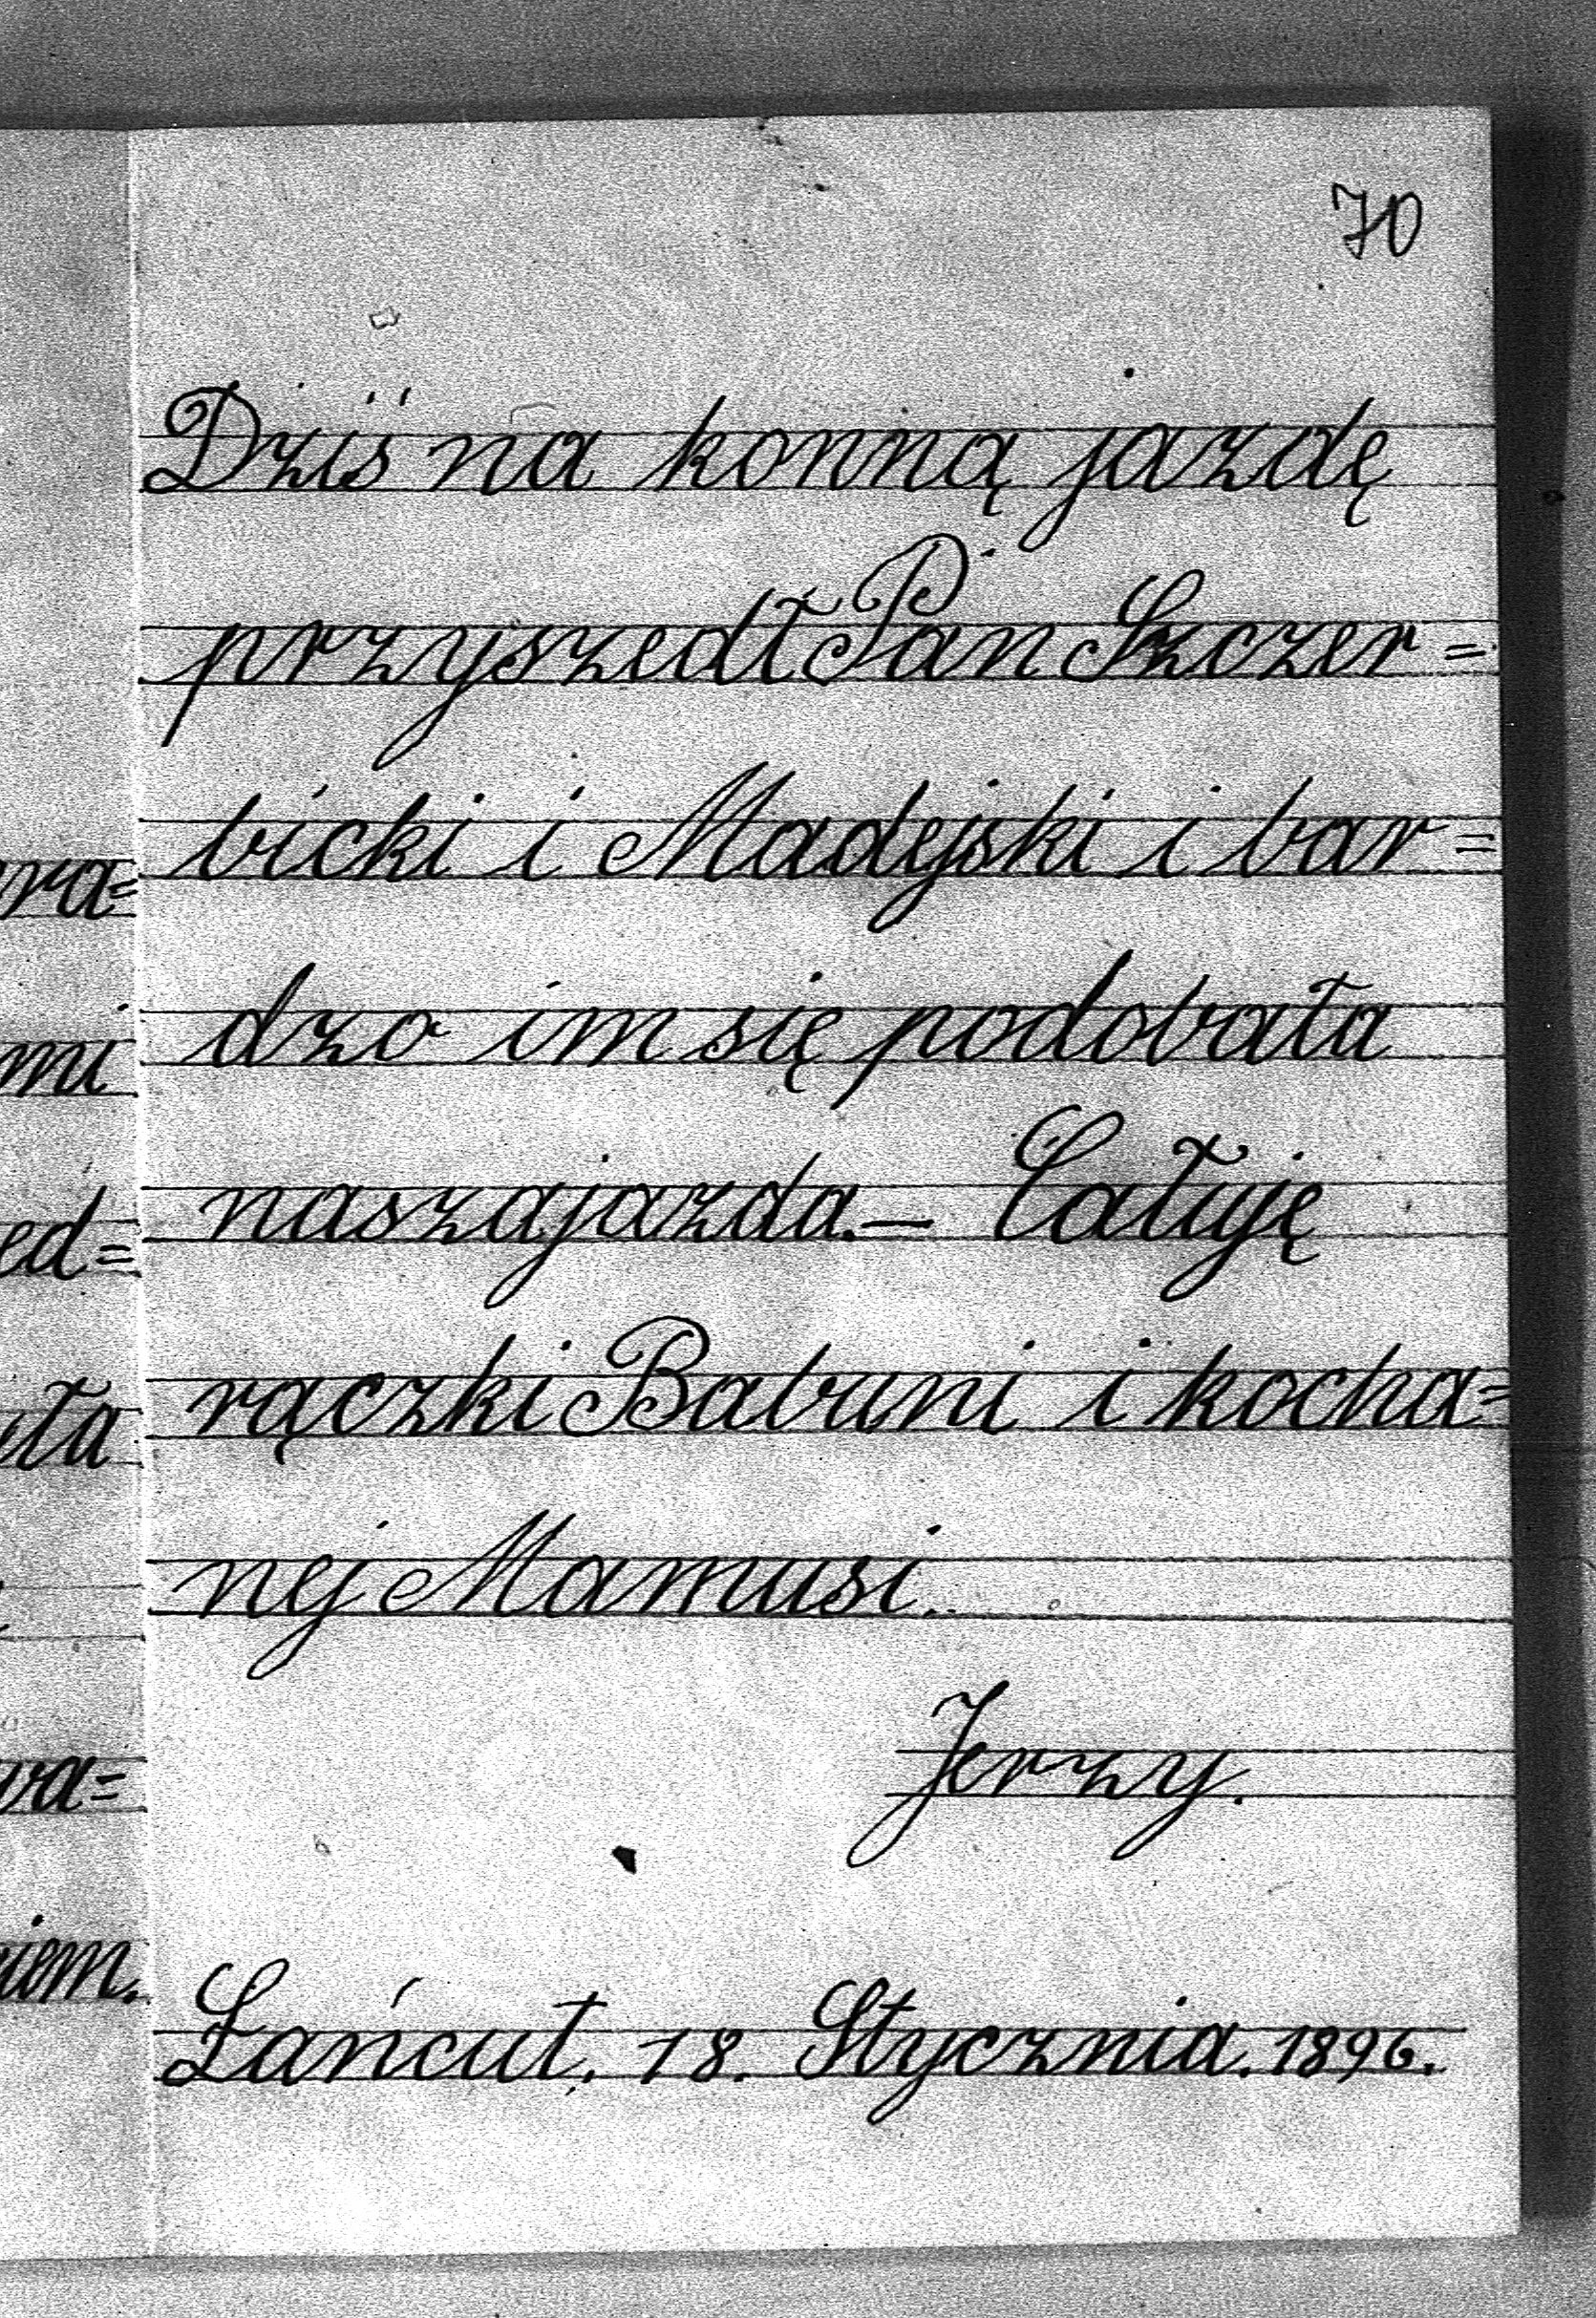 70
Dziś na konną jazdę
przyszedł Pan Szczer=
bicki i Madejski i bar=
dzo im się podobała
nasza jazda. — Całuję
rączki Babuni i kocha=
nej Mamusi.
Jerzy.
Łańcut. 18. Stycznia. 1896.